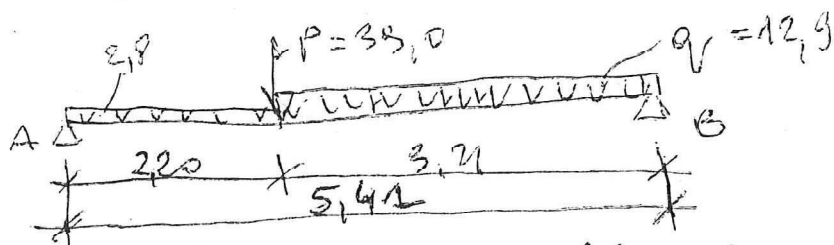 2,8
P = 38,0
q = 12,9
A
B
2,20
3,21
5,41